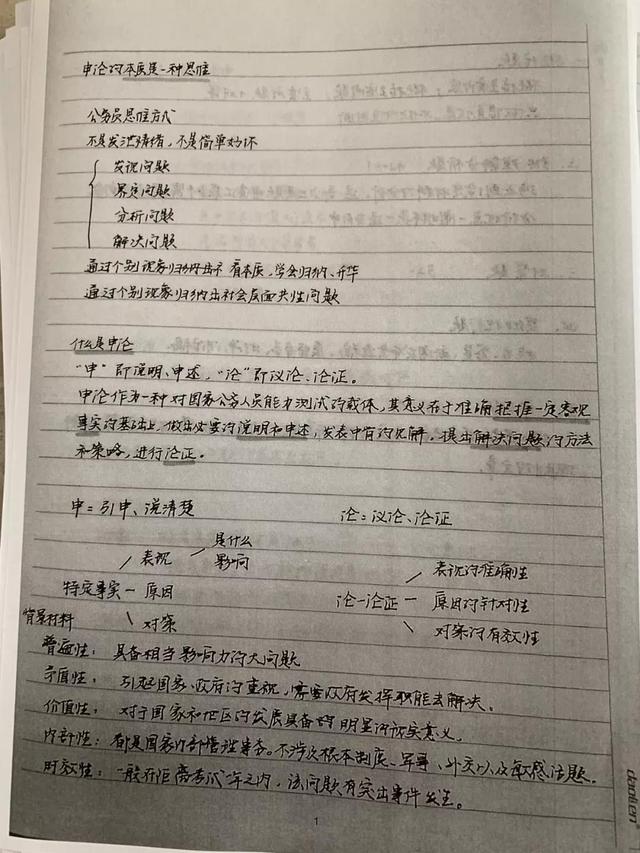 申论的本质是一种思维
公务员思维方式
不是发泄情绪，不是简单好坏
发现问题
界定问题
分析问题
解决问题
通过个别现象归纳出 看本质，学会归纳、升华
通过个别现象归纳出社会层面共性问题
什么是申论
"申"即说明、申述，"论"即议论、论证。
申论作为一种对国家公务人员能力测试的载体，其意义在于准确把握一定客观
事实的基础上，做出必要的说明和申述，发表中肯的见解，提出解决问题的方法
和策略，进行论证。
申=引申、说清楚 论=议论、论证
是什么
表现 影响 表现的准确性
特定事实－原因 论－论证－原因的针对性
对策 对策的有效性
背景材料
普遍性：具备相当影响力的大问题
矛盾性：引起国家、政府的重视，需要政府发挥职能去解决。
价值性：对于国家和地区的发展具备的明显的现实意义。
内部性：都是国家内部管理事务。不涉及根本制度、军事、外交以及敏感话题。
时效性：一般在距离考试一年之内，该问题有突出事件发生。
1